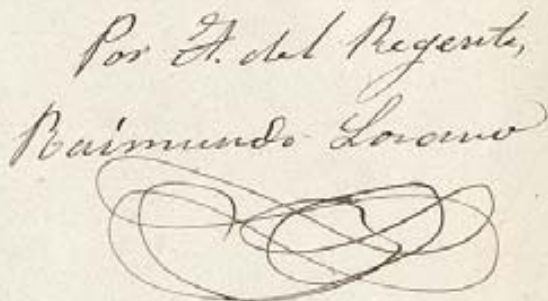 Por F. del Regente,
Raimundo Lozano